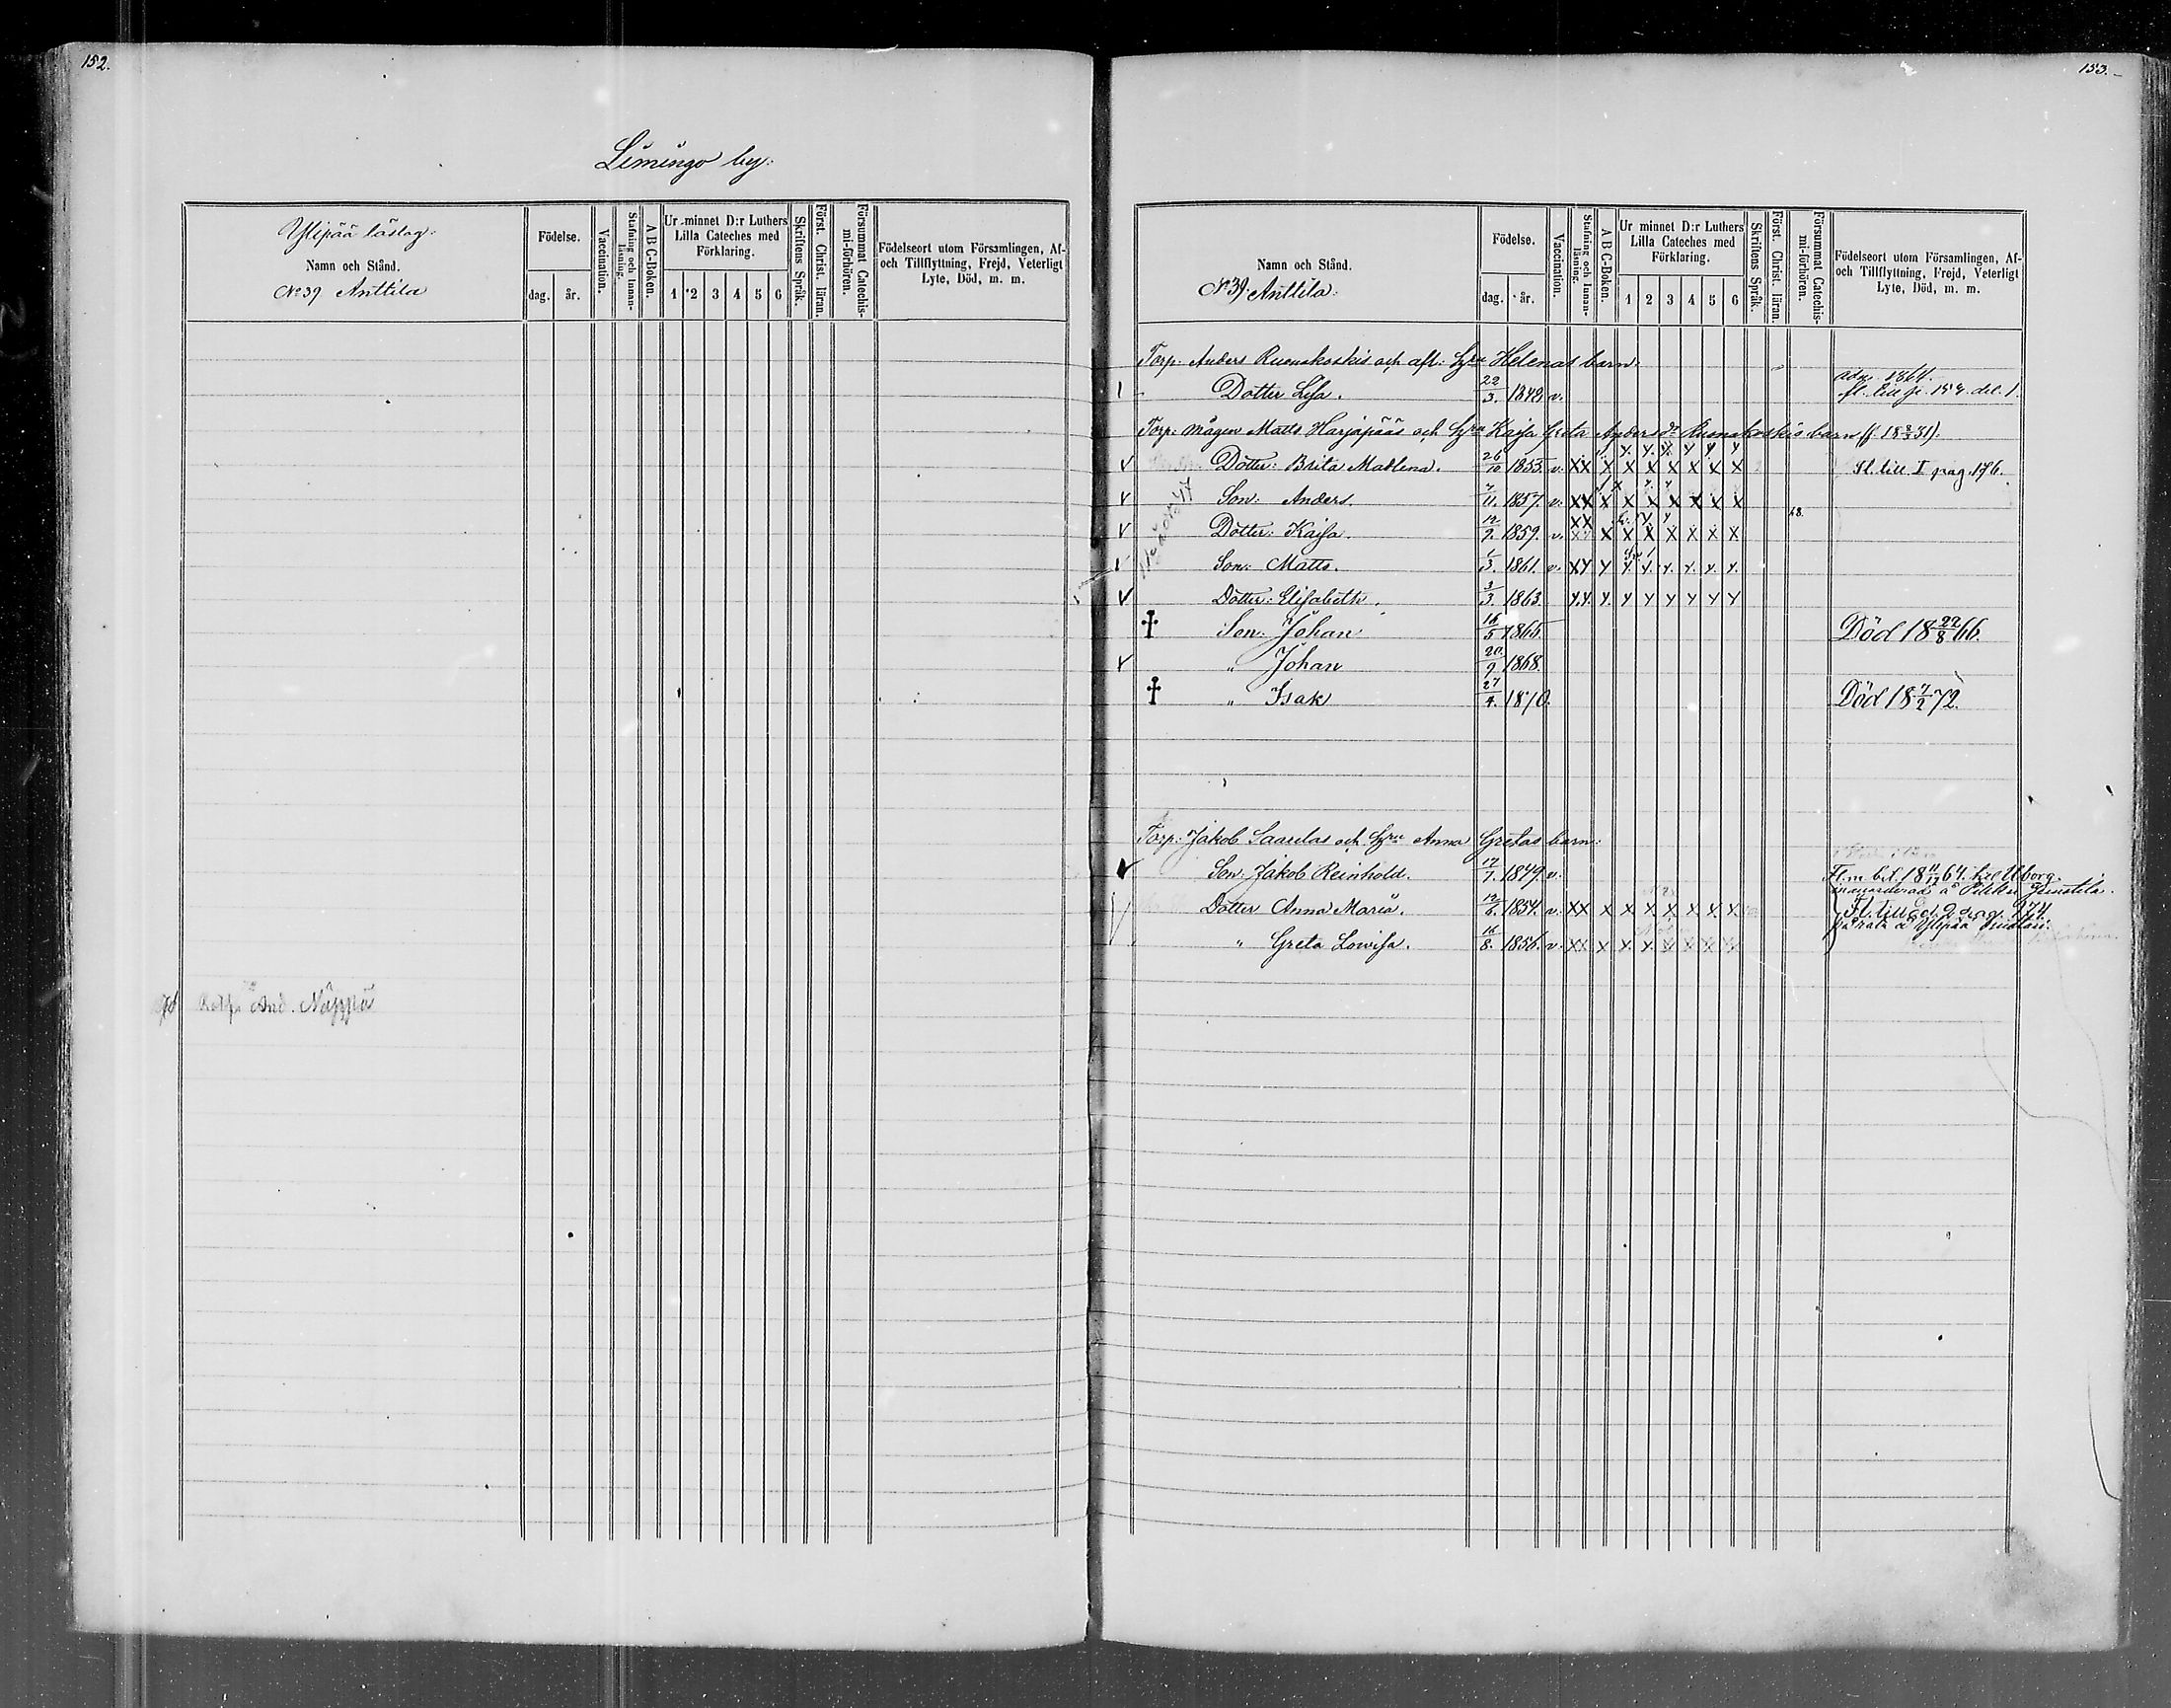 152.
Limingo by:
Ylipää läslag:
Namn och Stånd.
No 39 Anttila
Födelse.
dag. år.
Vaccination.
Stafning och Innan-läsning.
A B C-Boken.
Ur minnet D:r Luthers Lilla Cateches med Förklaring.
1 2 3 4 5 6
Skriftens Språk.
Först. Christ. läran.
Försummat Catechis-mi-förhören.
Födelseort utom Församlingen, Af- och Tillflyttning, Frejd, Veterligt Lyte, Död, m. m.
And. Näppä
153.
Namn och Stånd.
No 39. Anttila:
Födelse.
dag. år.
Vaccination.
Stafning och Innan-läsning.
A B C-Boken.
Ur minnet D:r Luthers Lilla Cateches med Förklaring.
1 2 3 4 5 6
Skriftens Språk.
Först. Christ. läran.
Försummat Catechis-mi-förhören.
Födelseort utom Församlingen, Af- och Tillflyttning, Frejd, Veterligt Lyte, Död, m. m.
Torp. Anders Ruonakoskis och afl. hu Helenas barn:
Dotter Lisa. 22/3. 1849. v. adm. 1864.
fl. till p. 159. del. 1.
Torp. mågen Matts Harjapääs och hu Kajsa Greta Andersdr Ruonakoskis barn (f. 18 2/3 31).
Dotter: Brita Madlena. 26/10 1855. v. XX X X X X X X X Fl. till I pag. 176.
Son: Anders. 7/11. 1857. v. XX X X X X X X X 68.
Dotter: Kaisa. 12/9. 1859. v. XX X X X X X X X
Son: Matts. 1/3. 1861. v. XY Y Y. Y. Y. Y. Y. Y.
Dotter: Elisabeth. 3/3. 1863. Y.Y. Y. Y Y Y Y Y Y
Son: Johan 16/5 1866. Död 18 22/8 66.
" Johan 20/9 1868.
" Isak 27/4. 1870. Död 18 7/2 72.
Torp: Jakob Saarelas och hu Anna Gretas barn:
Son: Jakob Reinhold. 17/7. 1849. v. Fl. m. bet. 18 11/12 64. t. Uleåborg.
Dotter Anna Maria. 12/6. 1854. v. XX X X X X X X X
Fl. till d. 2 pag. 174.
" Greta Lowisa. 16/8. 1856. v. XX X X X X X X X